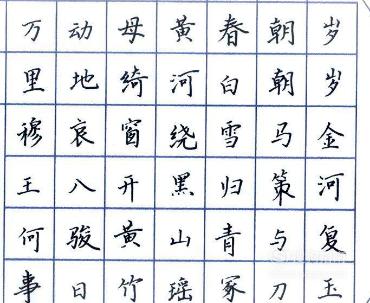 岁岁金河复玉
朝朝马策与刀
春白雪归青冢
黄河绕黑山瑶
母绮窗开黄竹
动地哀八骏日
万里穆王何事